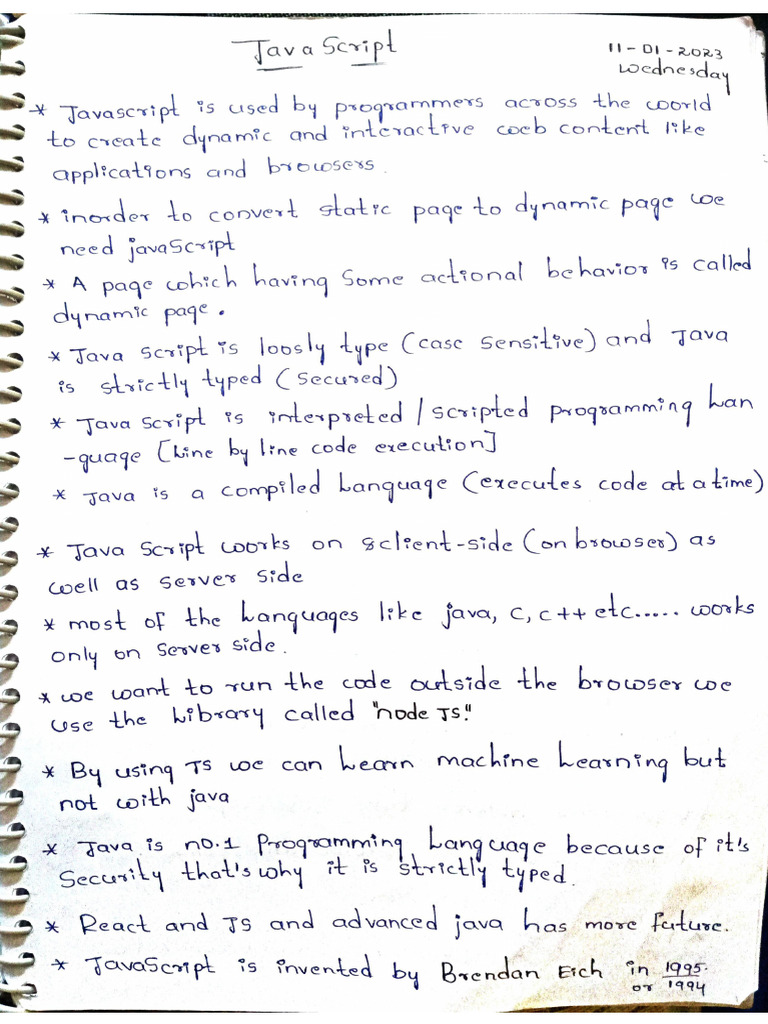 JavaScript
11-01-2023
Wednesday
* Javascript is used by programmers across the world
to create dynamic and interactive web content like
applications and browsers.
* inorder to convert static page to dynamic page we
need javaScript
* A page which having Some actional behavior is called
dynamic page.
* Java script is loosly type (case sensitive) and Java
is strictly typed (secured)
* Java script is interpreted / scripted programming Lan
-guage [Line by line code execution]
* Java is a compiled Language (executes code at a time)
* Java script works on sclient-side (on browser) as
well as server side
* most of the Languages like java, C, C++ etc..... works
only on Server side.
* we want to run the code outside the browser we
use the Library called "node JS."
* By using JS we can Learn machine Learning but
not with java
* Java is no.1 Programming Language because of it's
Security that's why it is strictly typed.
* React and JS and advanced java has more future.
* JavaScript is invented by Brendan Eich in 1995.
or 1994